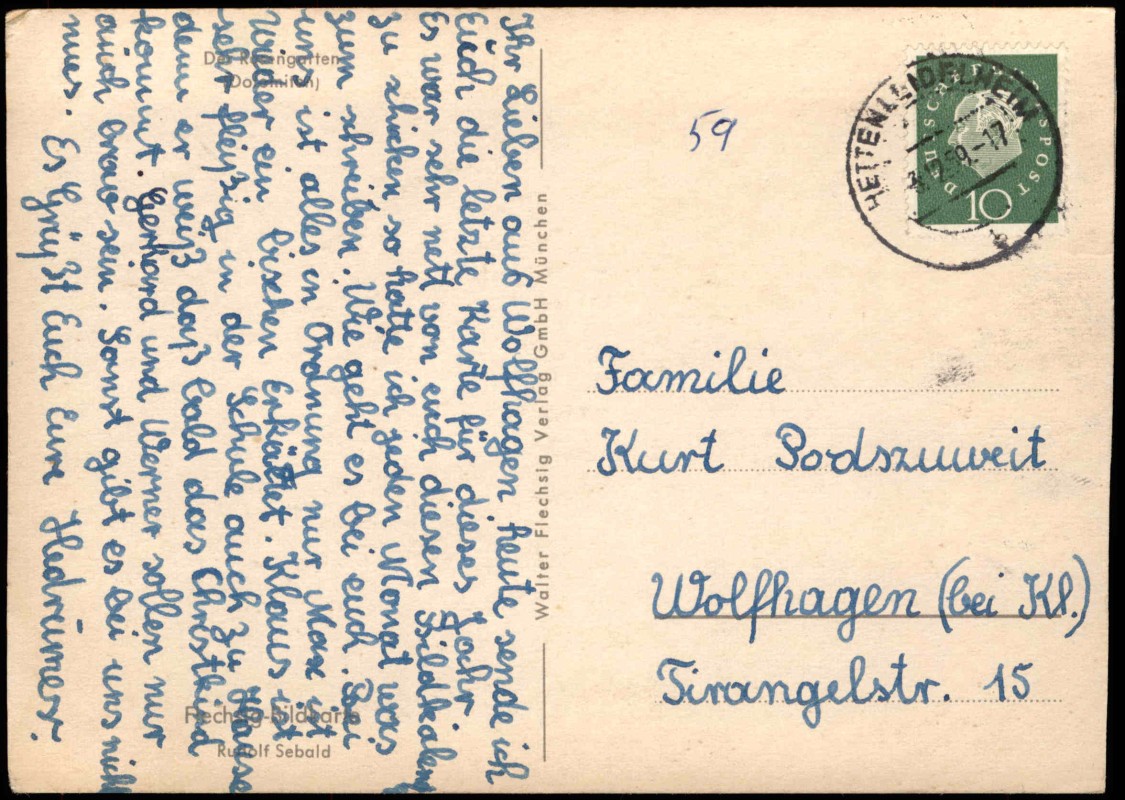 Ihr Lieben aus Wolfhagen heute sende ich
Euch die letzte Karte für dieses Jahr
Es war sehr nett von euch diesen Bildkalen
zu shicken so hatte ich jeden Monat was
zum shreiben. Wie geht es bei euch. Bei
uns ist alles in Ordnung nur Max ist
wider ein bischen Erkältet. Klaus ist
sehr fleißig in der Schule auch zu Hause
denn er weiß daß bald das Christkind
kommt. Gerhard und Werner sollen nur
auch brav sein. Sonst gibt es bei uns nicht
nnes. Es Grüßt Euch Eure
Der Rosengarten
(Dolomiten)
Flechsig-Bildkarte
Rudolf Sebald
Walter Flechsig Verlag GmbH München
59
HETTENLEIDELHEIM
.12.59.-17
DEUTSCHE BUNDESPOST
10
Familie
Kurt Podszuweit
Wolfhagen (bei Kl.)
Tirangelstr. 15